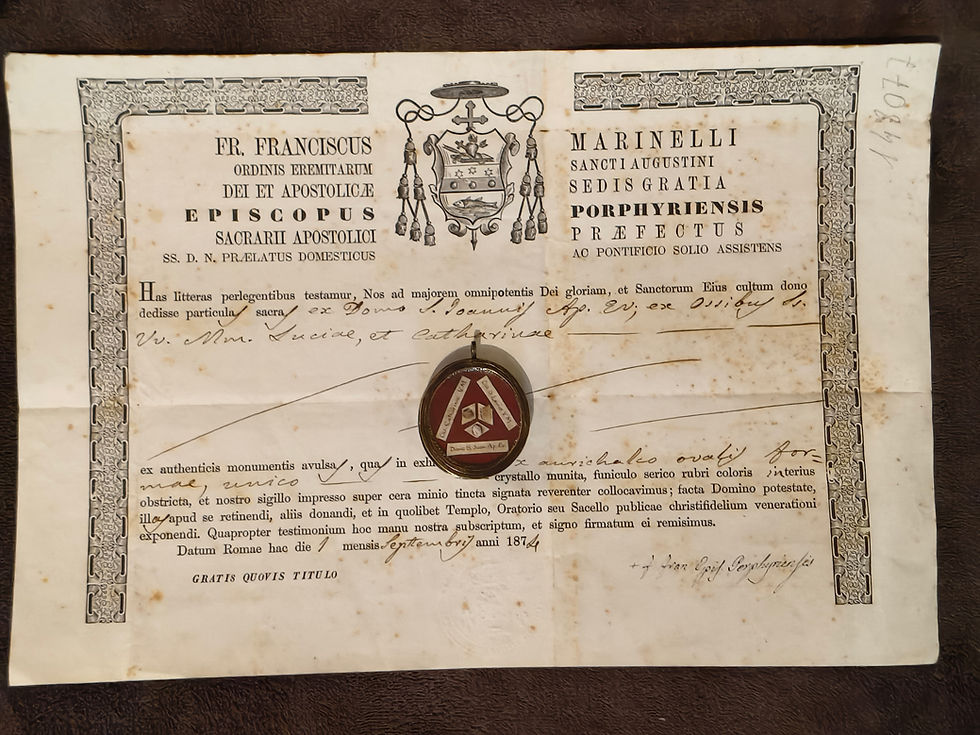 FR. FRANCISCUS MARINELLI
ORDINIS EREMITARUM SANCTI AUGUSTINI
DEI ET APOSTOLICÆ SEDIS GRATIA
EPISCOPUS PORPHYRIENSIS
SACRARII APOSTOLICI PRÆFECTUS
SS. D. N. PRÆLATUS DOMESTICUS AC PONTIFICIO SOLIO ASSISTENS
Has litteras perlegentibus testamur, Nos ad majorem omnipotentis Dei gloriam, et Sanctorum Eius cultum dono
dedisse particulas sacras ex Domo S. Joannis Ap. Ev; ex Ossibus Ss.
Vv. Mm. Luciae, et Catharinae
Domo S. Joan. Ap. Ev.
ex authenticis monumentis avulsas, quas in aurichalco ovalis for=
mae, unico crystallo munita, funiculo serico rubri coloris interius
obstricta, et nostro sigillo impresso super cera minio tincta signata reverenter collocavimus; facta Domino potestate,
illas apud se retinendi, aliis donandi, et in quolibet Templo, Oratorio seu Sacello publicae christifidelium venerationi
exponendi. Quapropter testimonium hoc manu nostra subscriptum, et signo firmatum ei remisimus.
Datum Romae hac die 1 mensis Septembris anni 1874
GRATIS QUOVIS TITULO
+ f Fran Epis Porphyriensis